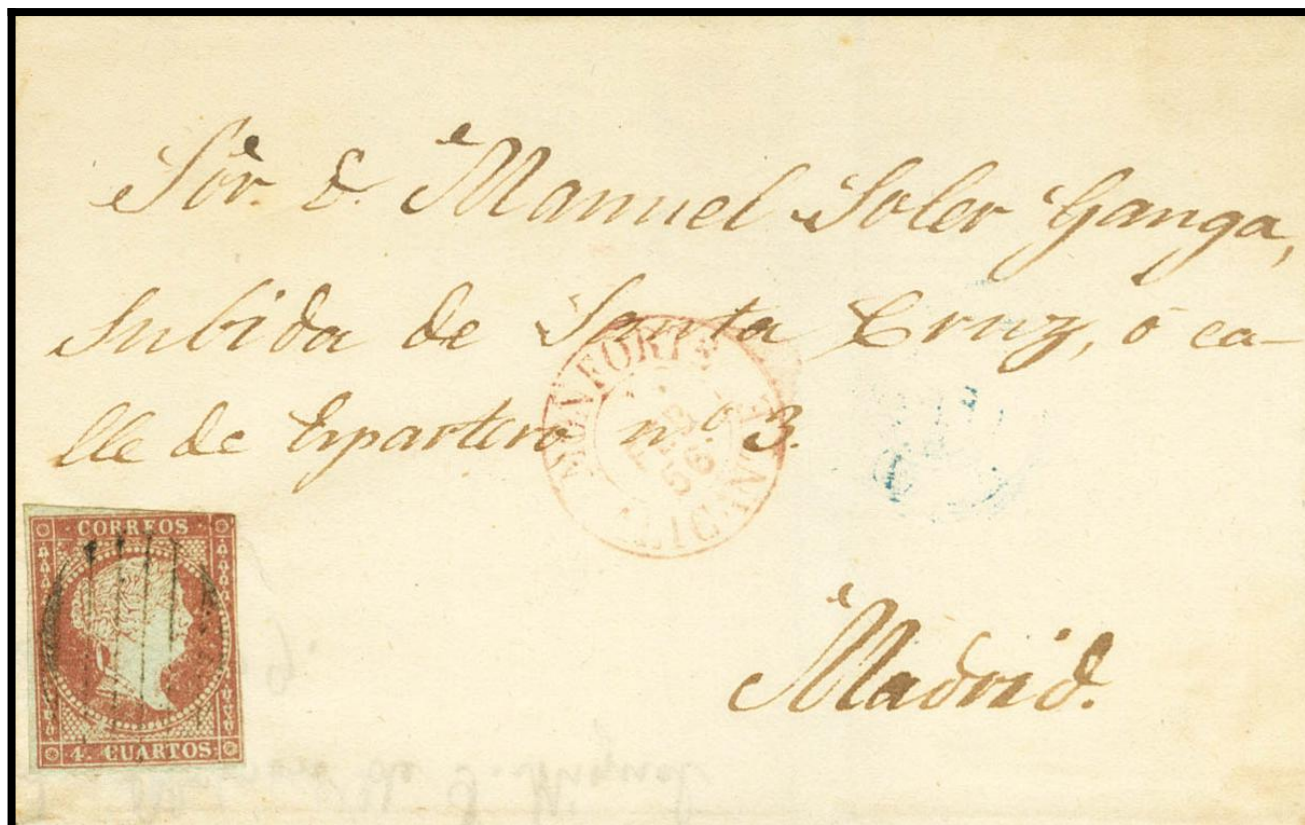 Sor. D. Manuel Soler Ganga,
Subida de Santa Cruz, ó ca-
lle de Espartero nº. 3.
MONFORTE
FEB
56
ALICANTE
Madrid.
CORREOS
4. CUARTOS